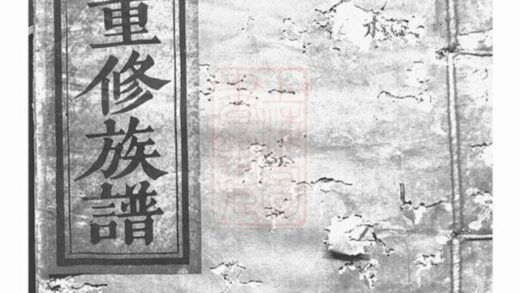 重修族譜